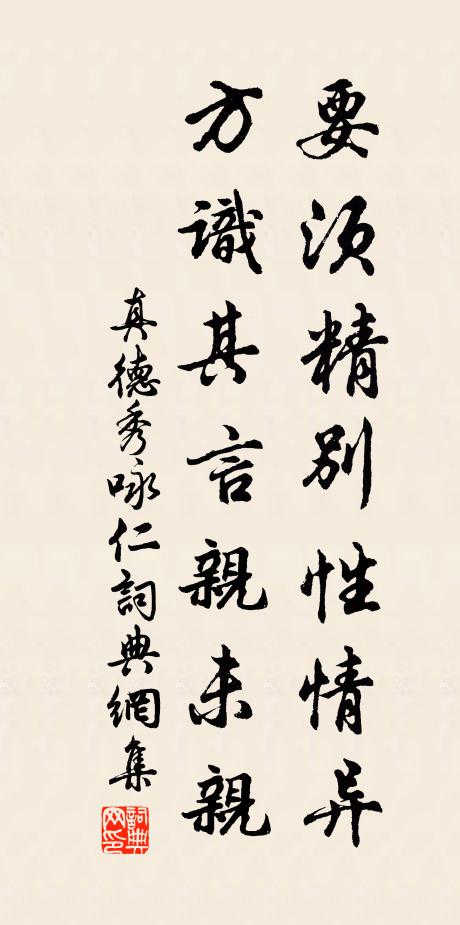 要须精别性情异
方識其言親未親
真德秀咏仁詞典網集
詞典
网印